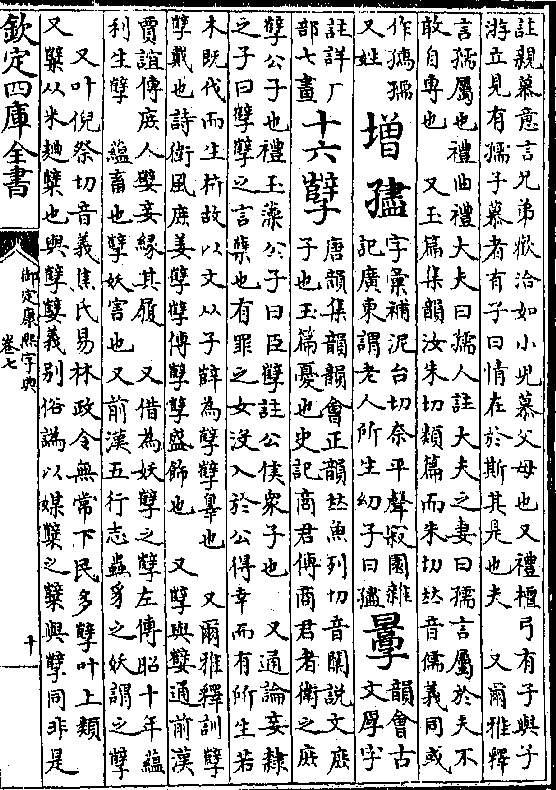 註親慕意言兄弟歡洽如小兒慕父母也又禮檀弓有子與子
游立見有孺子慕者有子曰情在於斯其是也夫　又爾雅釋
言孺屬也禮曲禮大夫曰孺人註大夫之妻曰孺言屬於夫不
敢自專也　又玉篇集韻汝朱切類篇而朱切𠀤音儒義同或
作㺟孺
又姓
增𡦃
字彙補泥台切奈平聲寂園雜
記廣東謂老人所生幼子曰𡦃
㬅
韻會古
文厚字
註詳厂
部七畫
十六孼
唐韻集韻韻會正韻𠀤魚列切音闑說文庶
子也玉篇憂也史記商君傳商君者衛之庶
孼公子也禮玉藻公子曰臣孼註公侯衆子也　又通論妾隸
之子曰孼孼之言櫱也有罪之女沒入於公得幸而有所生若
木旣伐而生枿故以文从子辥為孼孼辠也　又爾雅釋訓孼
孼戴也詩衛風庶姜孼孼傳孼孼盛飾也　又孼與嬖通前漢
賈誼傳庶人嬖妾緣其履　又借為妖孼之孼左傳昭十年蘊
利生孼　蘊畜也孼妖害也又前漢五行志蟲豸之妖謂之孼
又叶倪祭切音義焦氏易林政令無常下民多孼叶上類
又糱从米麯糱也與孼孼義别俗譌以媒糱之糱與孼同非是
欽定四庫全書
御定康熙字典
卷七
十